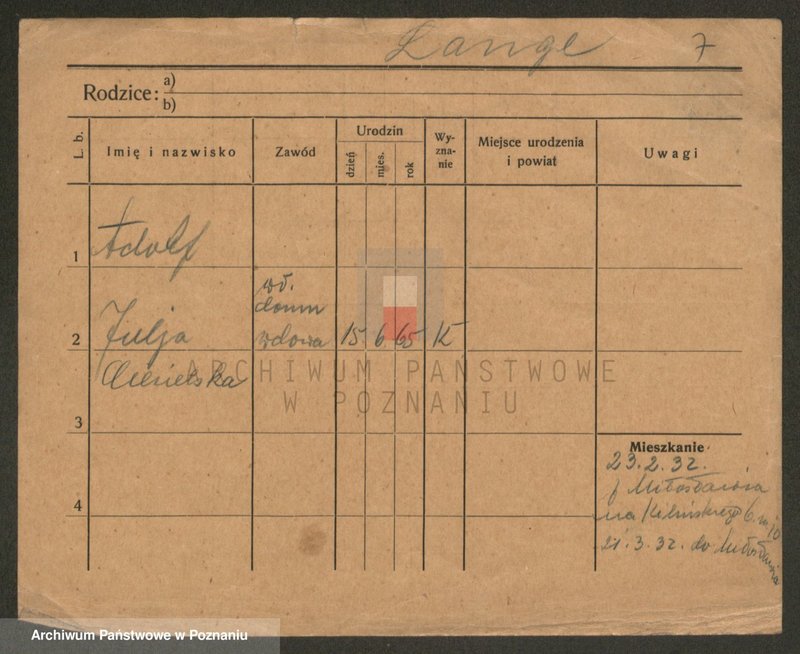 Lange 7
Rodzice: a)
b)
L. b.
Imię i nazwisko
Zawód
Urodzin
dzień
mies.
rok
Wy-
zna-
nie
Miejsce urodzenia
i powiat
Uwagi
1 Adolf
wł.
domu
2 Julja wdowa 15 6 65 K
Ciesielska
ARCHIWUM PAŃSTWOWE
W POZNANIU
3
Mieszkanie
23.2.32.
Miłosławia
na Kilińskiego 6 m 10
4
21.3.32. do Miłosławia
Archiwum Państwowe w Poznaniu